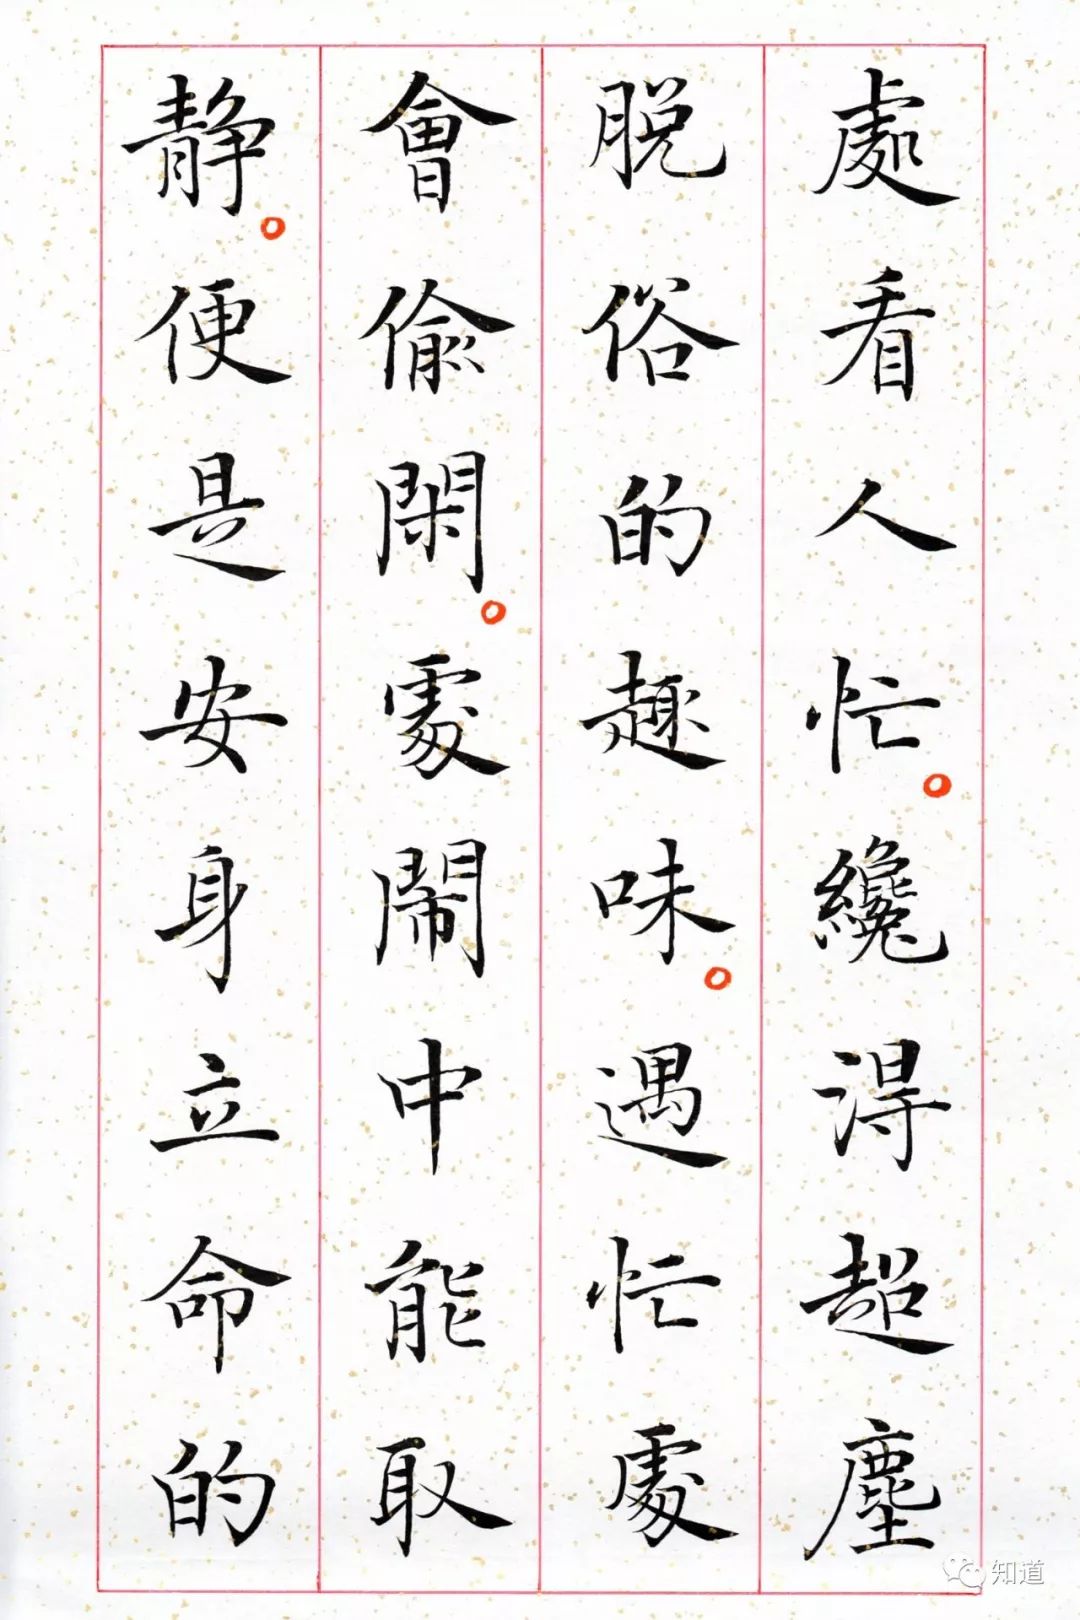 處看人忙。纔得超塵
脱俗的趣味。遇忙處
會偷閑。處鬧中能取
静。便是安身立命的
知道